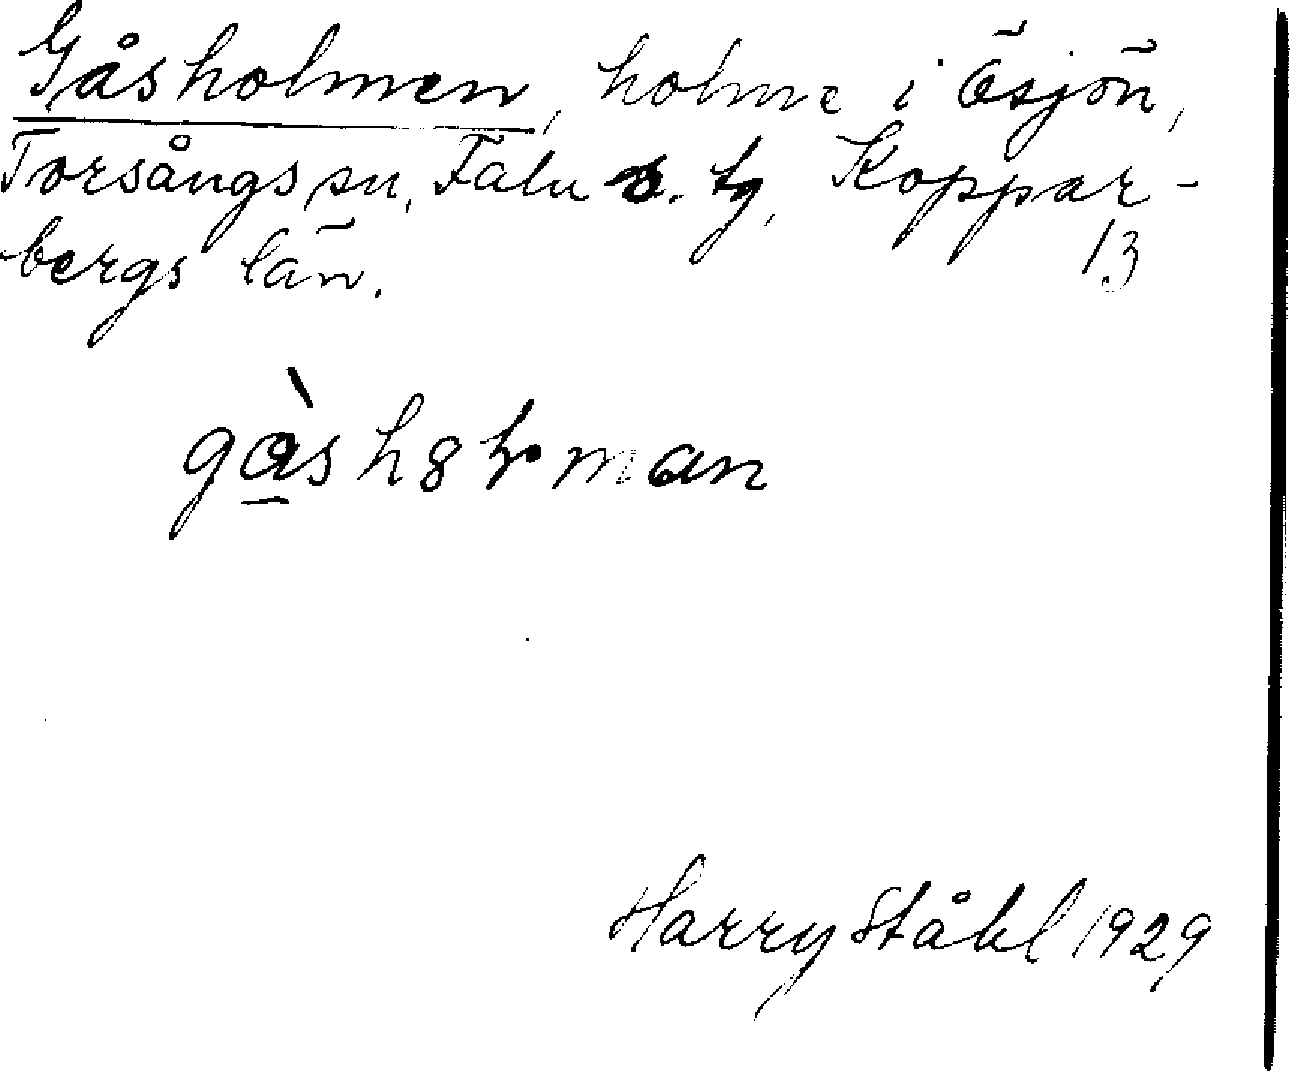 Gåsholmen, holme i Ösjön,
Torsångs sn, Falu s. tg, Koppar-
bergs län. 13
gà̱sh8ḷman
Harry Ståhl 1929